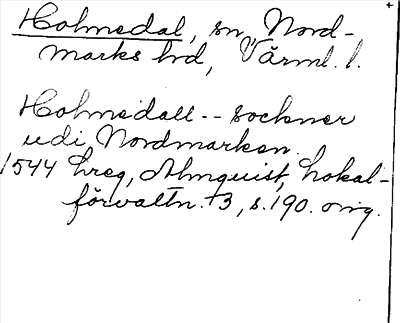 Holmedal, sn, Nord-
marks hd, Värml. l.
Holmedall -- sockner
udi Nordmarken.
1544 hreg, Almquist, Lokal-
förvaltn. 3, s. 190. orig.